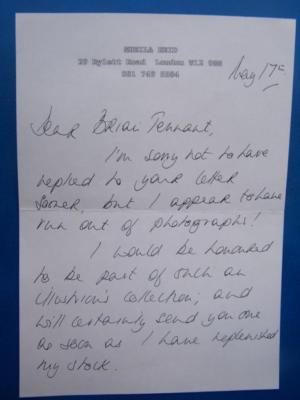 SHEILA REID
29 Rylett Road London W12 9SS
081 749 8804
May 17th
Dear Brian Tennant,
I'm sorry not to have
replied to your letter
sooner, but I appear to have
run out of photographs!
I would be honoured
to be part of such an
illustrious collection; and
will certainly send you one
as soon as I have replenished
my stock.